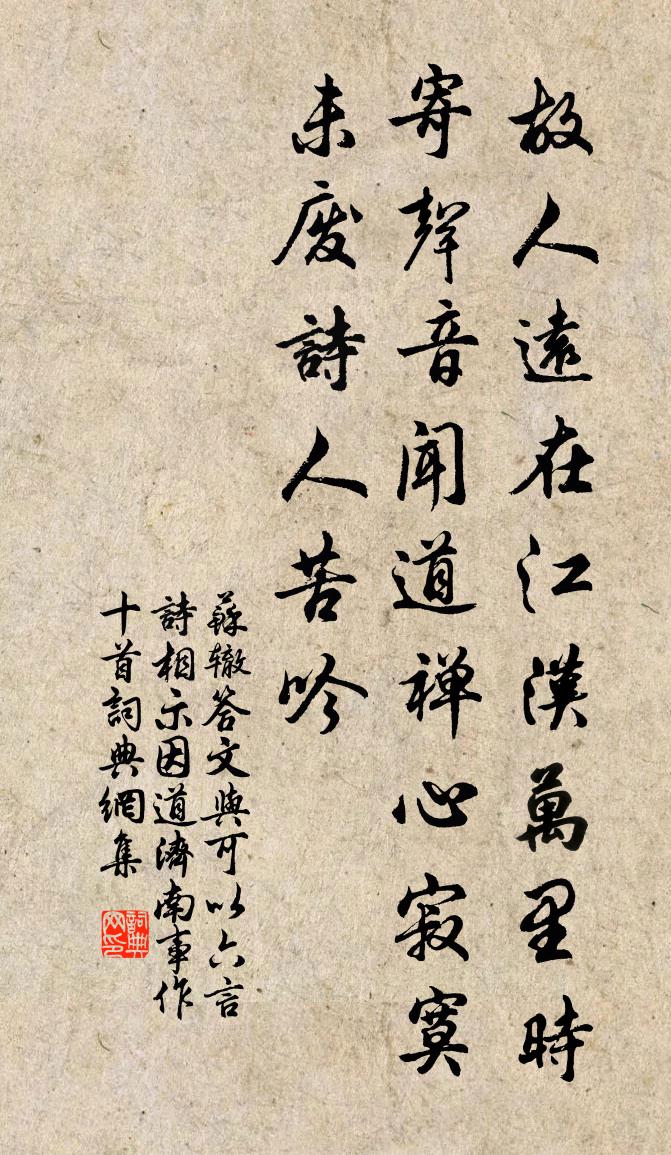 故人遠在江漢萬里時
寄聲音聞道禅心寂寞
未廢詩人苦吟
蘇辙答文與可以六言
詩相示因道濟南事作
十首詞典網集
詞典
网印